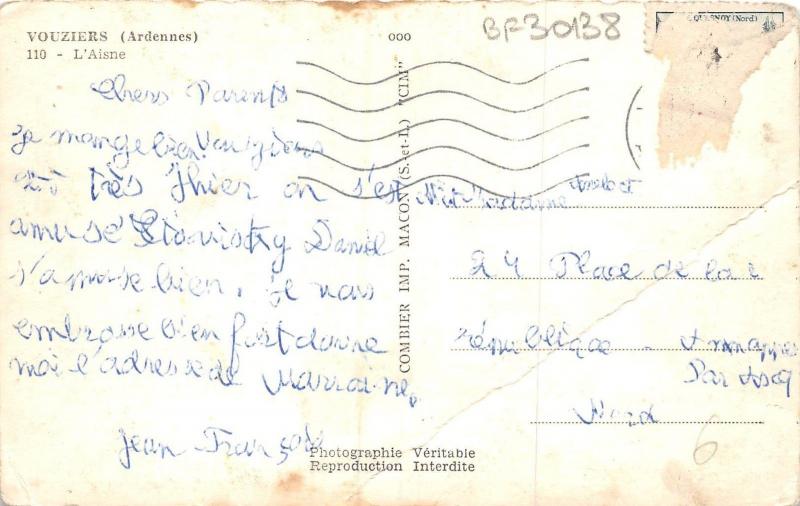 VOUZIERS (Ardennes)
110 - L'Aisne
ooo
BF30138
QUESNOY (Nord)
Chers Parents
je mange bien. Vouziers
est très Jhier on s'est
amusé Daniel
s'amuse bien. je vous
embrasse bien fort donne
moi l'adresse de Marraine.
Jean-François
COMBIER IMP. MACON (S.-et-L.) "CIM"
Mr et Madame
24 Place de la
république - Annappes
Par Ascq
Nord
6
Photographie Véritable
Reproduction Interdite